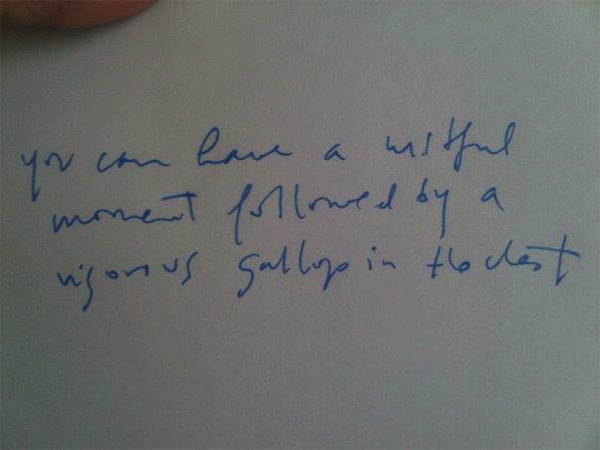 you can have a wistful
moment followed by a
vigorous gallop in the